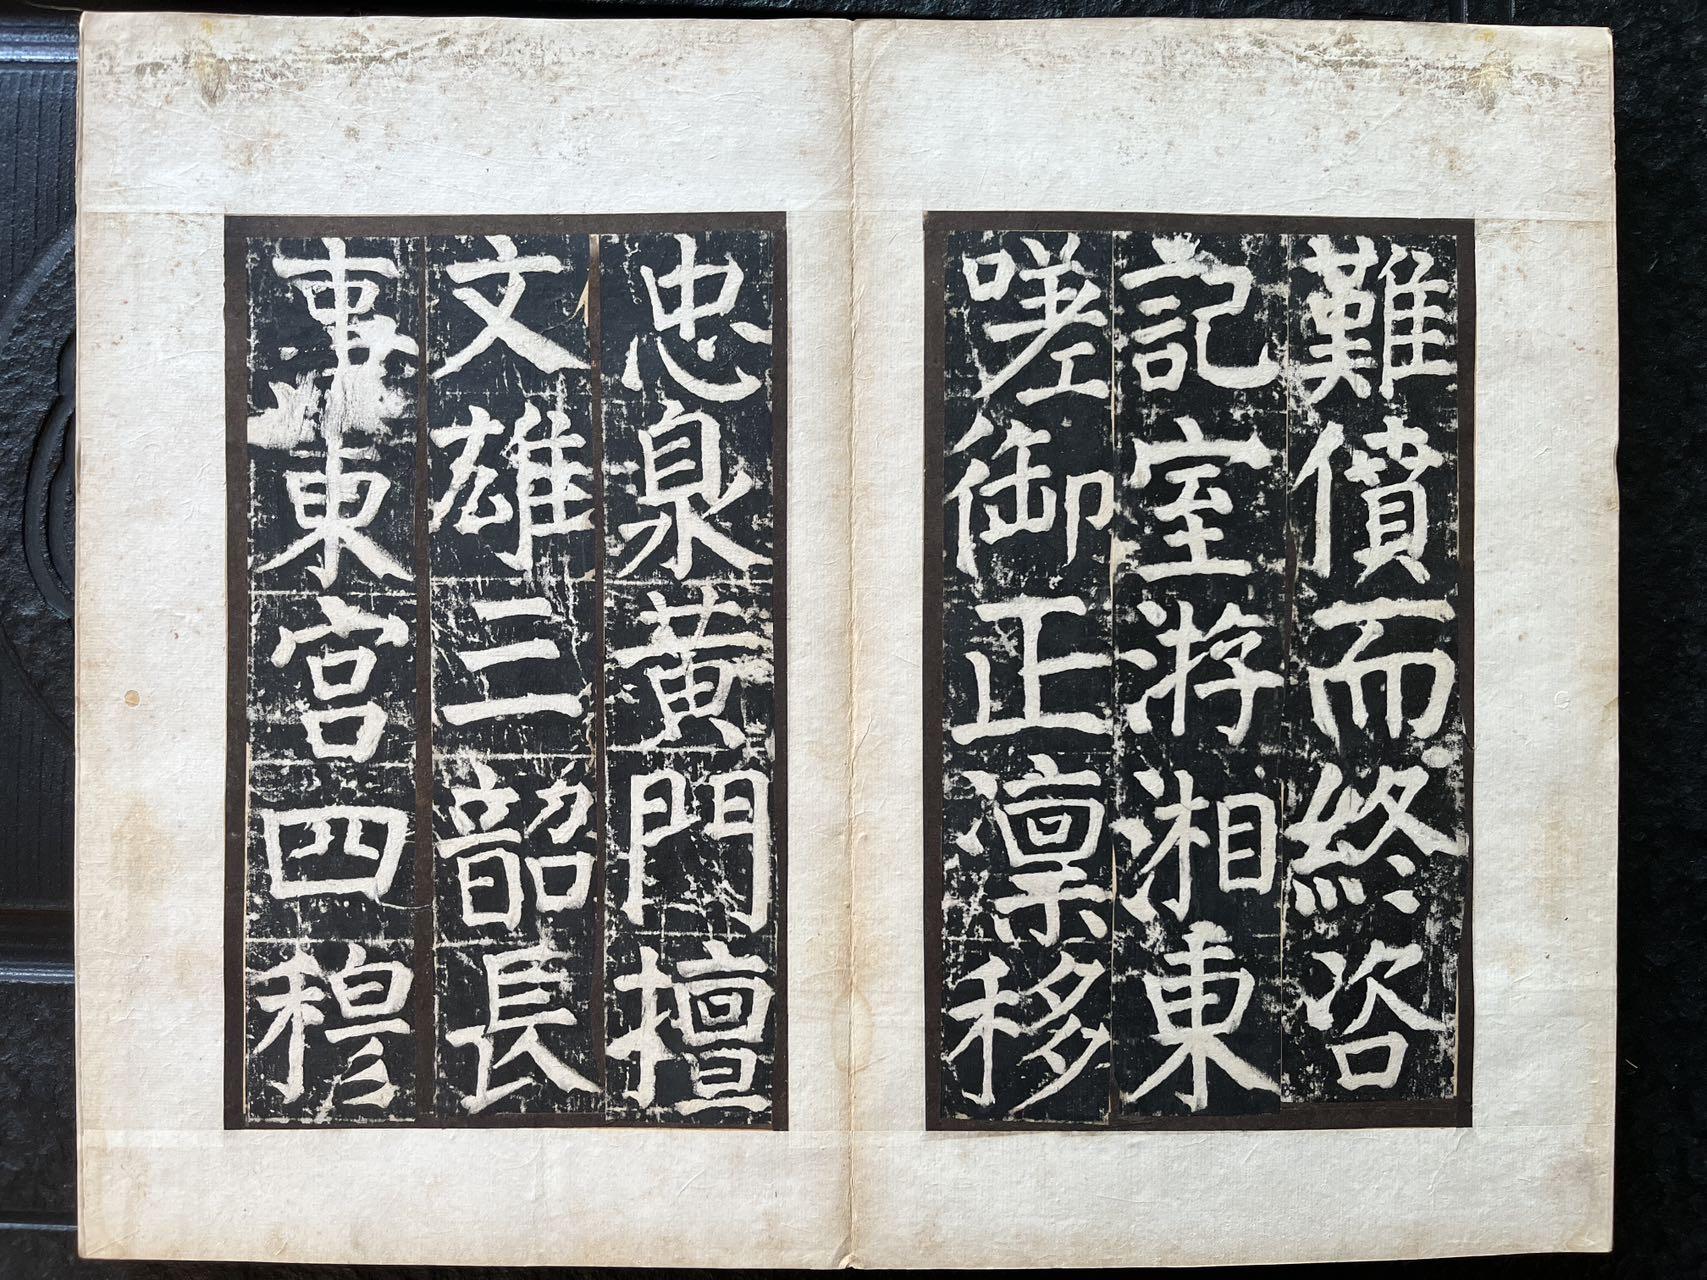 難償而終咨
記室游湘東
嗟御正凛移
忠臮黃門擅
文雄三韶長
事東宮四穆